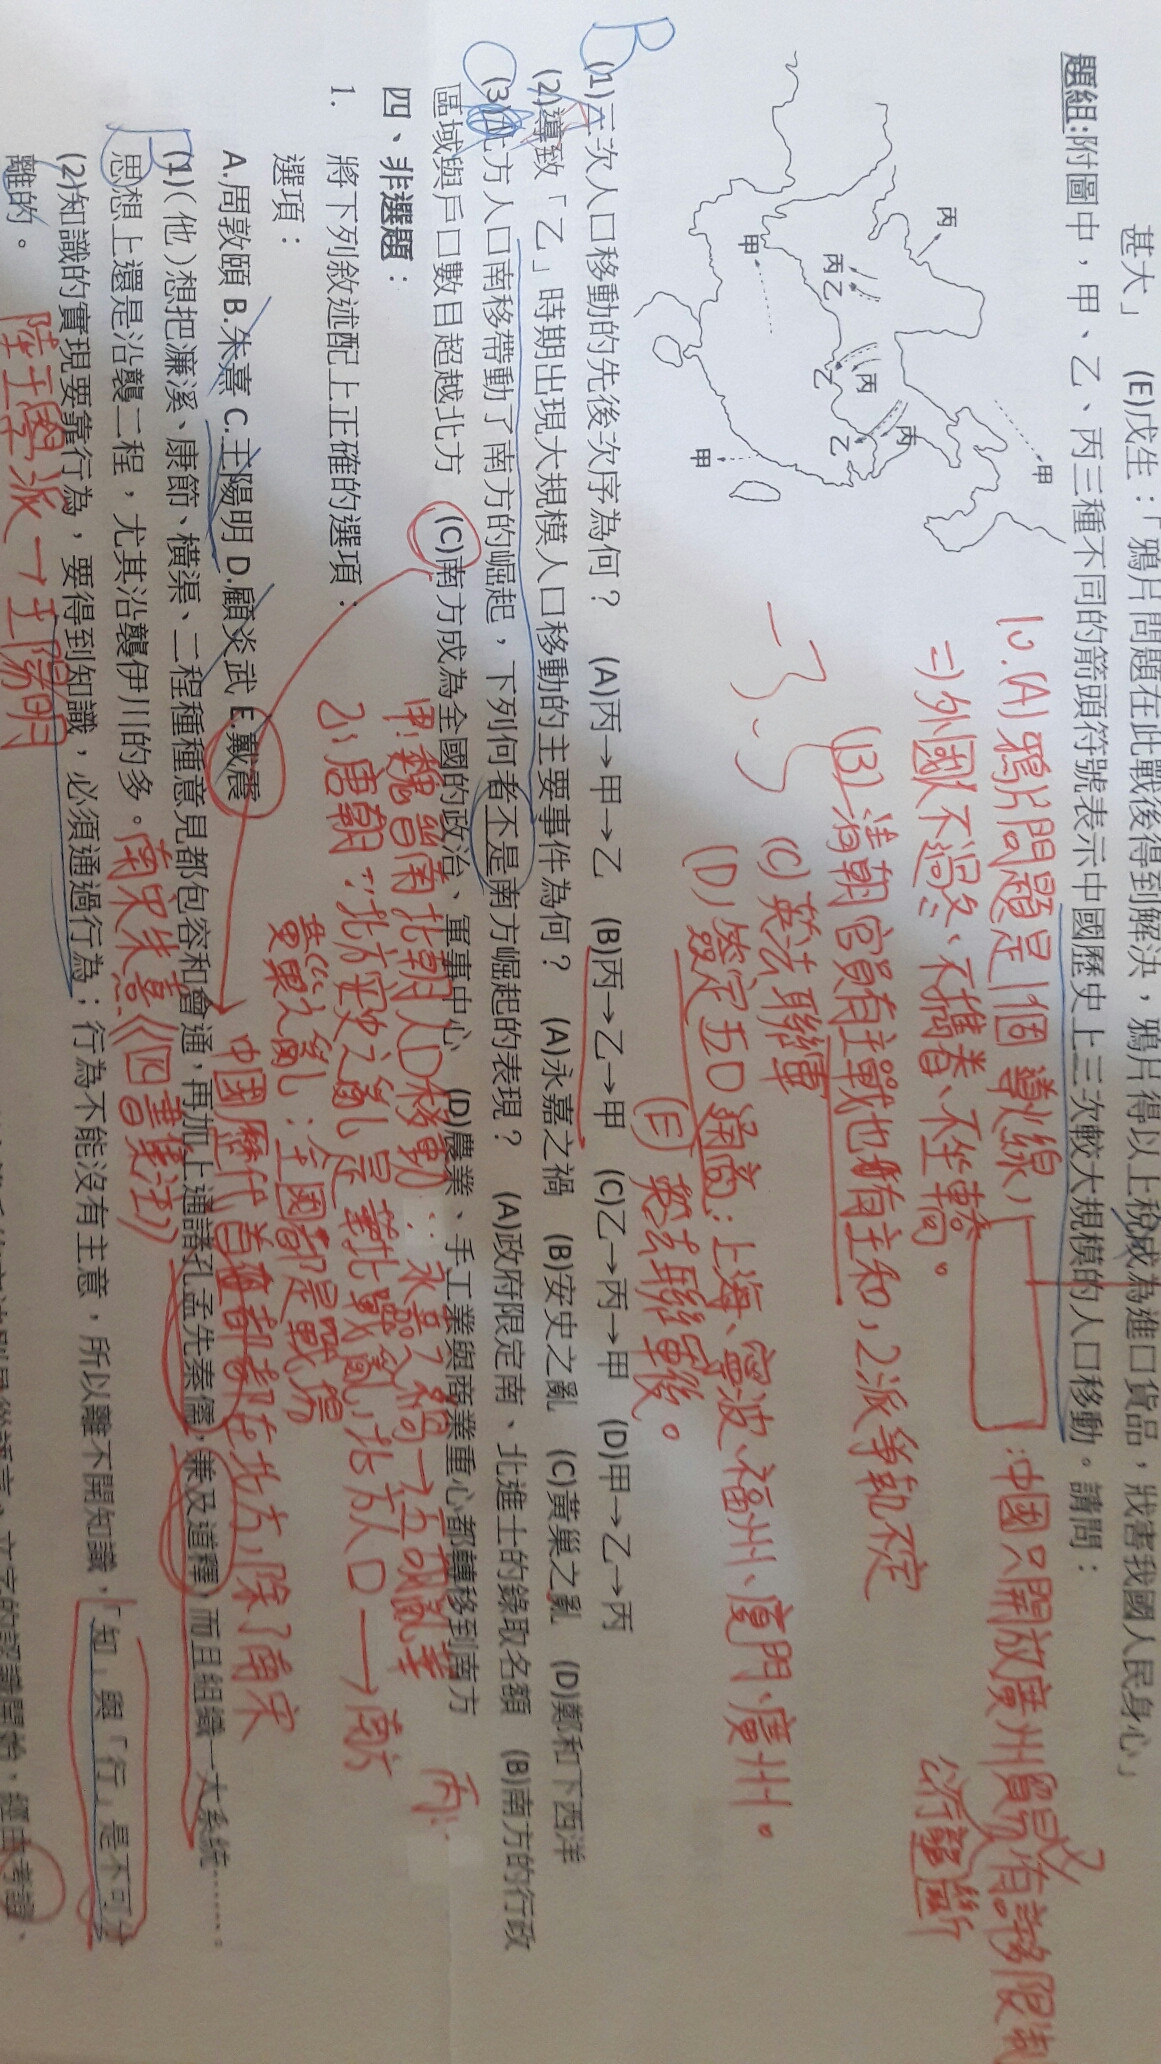 甚大」　(E)戊生：「鴉片問題在此戰後得到解決，鴉片得以上稅成為進口貨品，戕害我國人民身心」
題組:附圖中，甲、乙、丙三種不同的箭頭符號表示中國歷史上三次較大規模的人口移動。請問：
甲
丙
丙
丙
乙
乙
丙
乙
甲
甲
10.(A)鴉片問題是1個 導火線,
:中國只開放廣州貿易,有許多限制
=)外國人不過冬、不攜眷、不坐轎。
公行壟斷
(B)清朝官員有主戰也有主和,2派爭執不定
(C)英法聯軍
(D)簽定五口通商:上海、寧波、福州、廈門、廣州。
(E)英法聯軍後。
B
(1)三次人口移動的先後次序為何？　(A)丙→甲→乙　(B)丙→乙→甲　(C)乙→丙→甲　(D)甲→乙→丙
(2)導致「乙」時期出現大規模人口移動的主要事件為何？　(A)永嘉之禍　(B)安史之亂　(C)黃巢之亂　(D)鄭和下西洋
C
(3)北方人口南移帶動了南方的崛起，下列何者不是南方崛起的表現？　(A)政府限定南、北進士的錄取名額　(B)南方的行政
區域與戶口數目超越北方　(C)南方成為全國的政治、軍事中心　(D)農業、手工業與商業重心都轉移到南方
甲:魏晉南北朝人口移動:永嘉之禍→五胡亂華
丙:
四、非選題：
乙:唐朝:北方安史之亂是華北戰亂,北方人口→南方
1.　將下列敘述配上正確的選項：
黃巢之亂:全國都是戰場
選項：
中國歷代首都都在北方,除了南宋
A.周敦頤 B.朱熹 C.王陽明 D.顧炎武 E.戴震
B
(1)(他)想把濂溪、康節、橫渠、二程種種意見都包容和會通，再加上通諸孔孟先秦儒，兼及道釋，而且組織一大系統……。
思想上還是沿襲二程，尤其沿襲伊川的多。
南宋朱熹《四書集注》
(2)知識的實現要靠行為，要得到知識，必須通過行為；行為不能沒有主意，所以離不開知識，「知」與「行」是不可分
離的。
陸王學派→王陽明